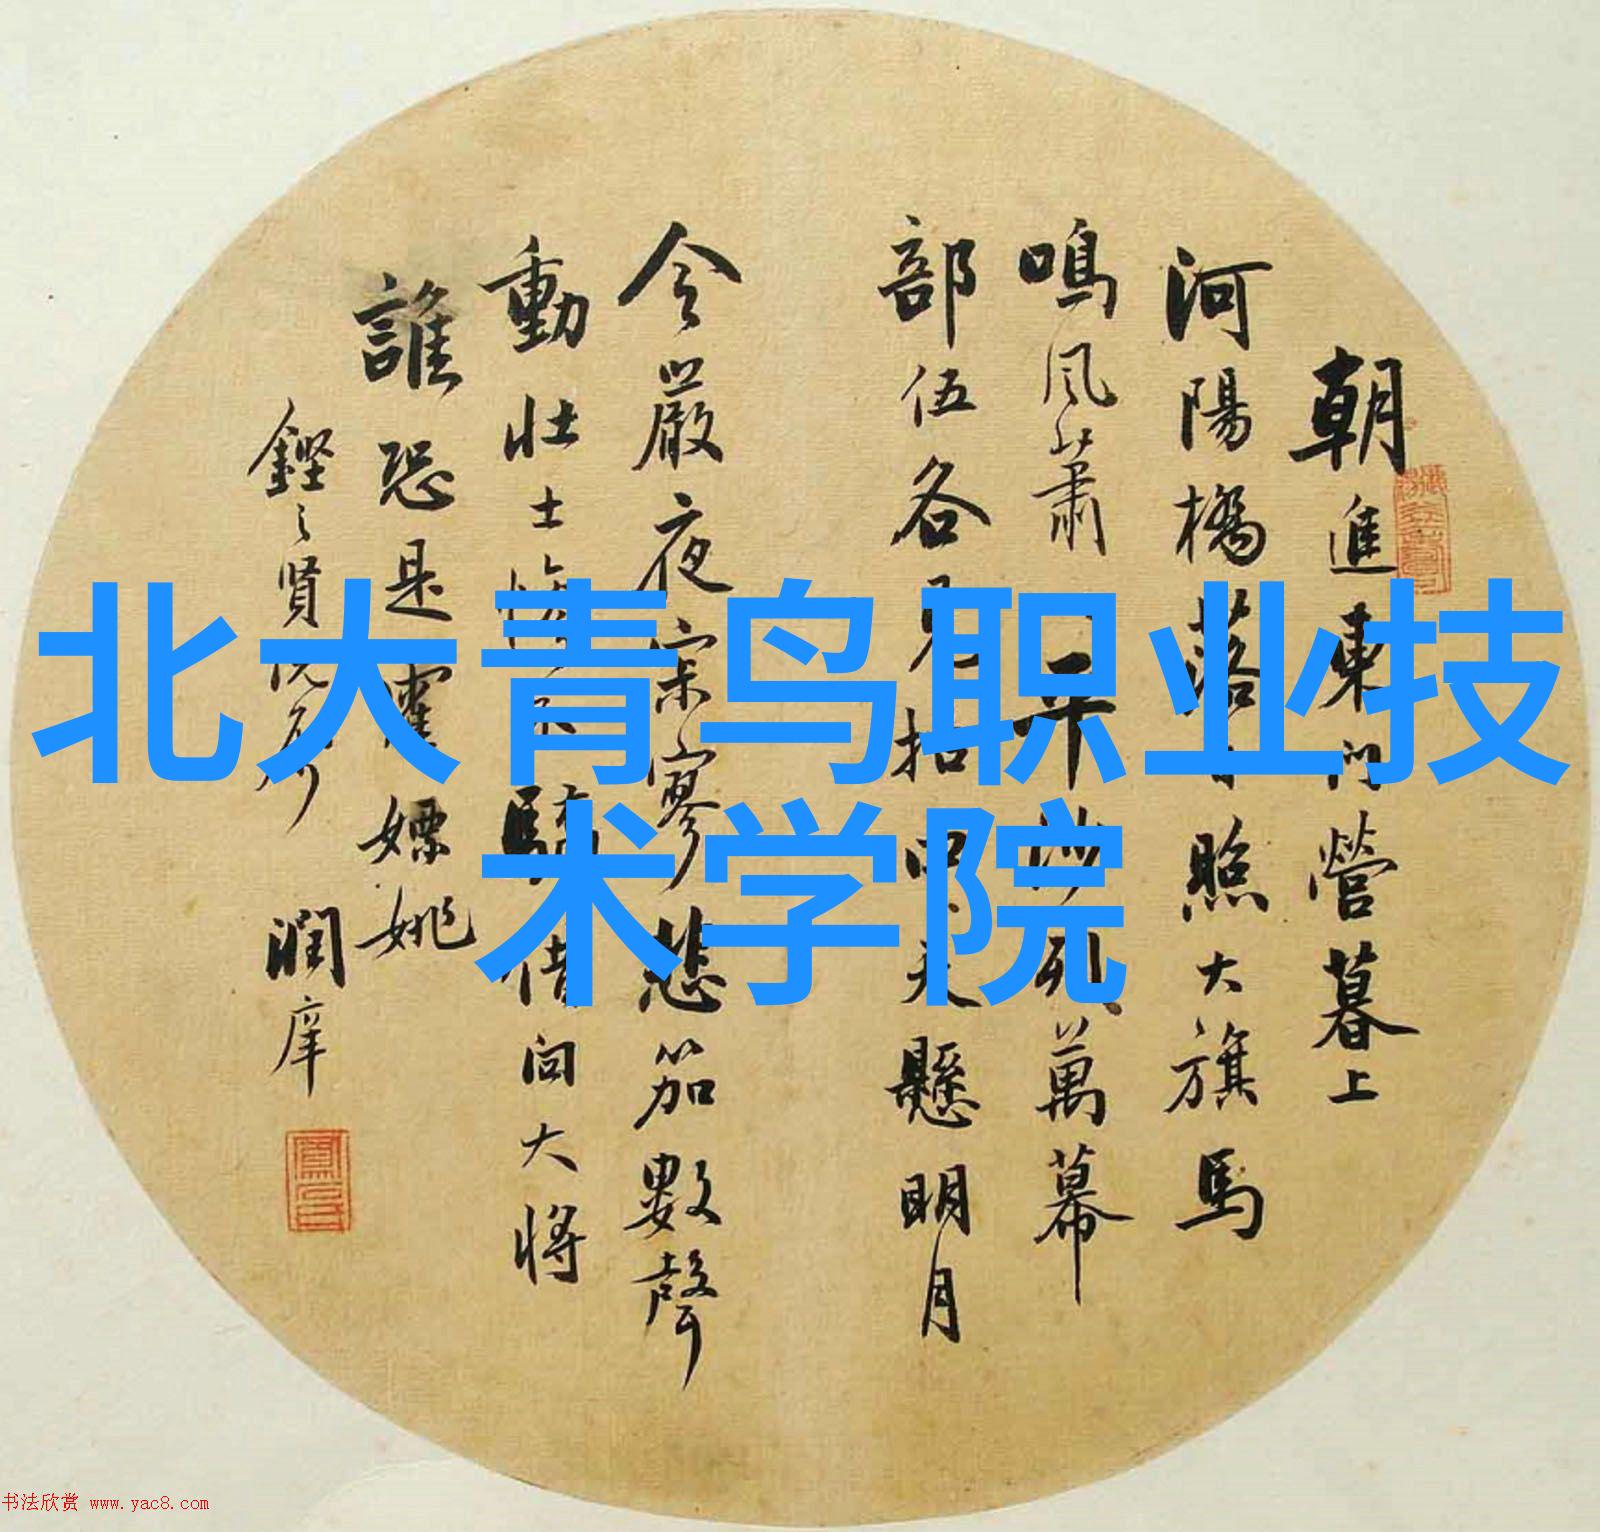 朝進東門營暮上
河陽橋落日照大旗馬
鳴風蕭平沙列萬幕
部伍各見招中天懸明月
令嚴夜寂寥悲笳數聲
動壯士慘不驕借問大將
誰恐是霍嫖姚
賢
潤庠
北大青鸟职业技
术学院
书法欣赏 www.yac8.com